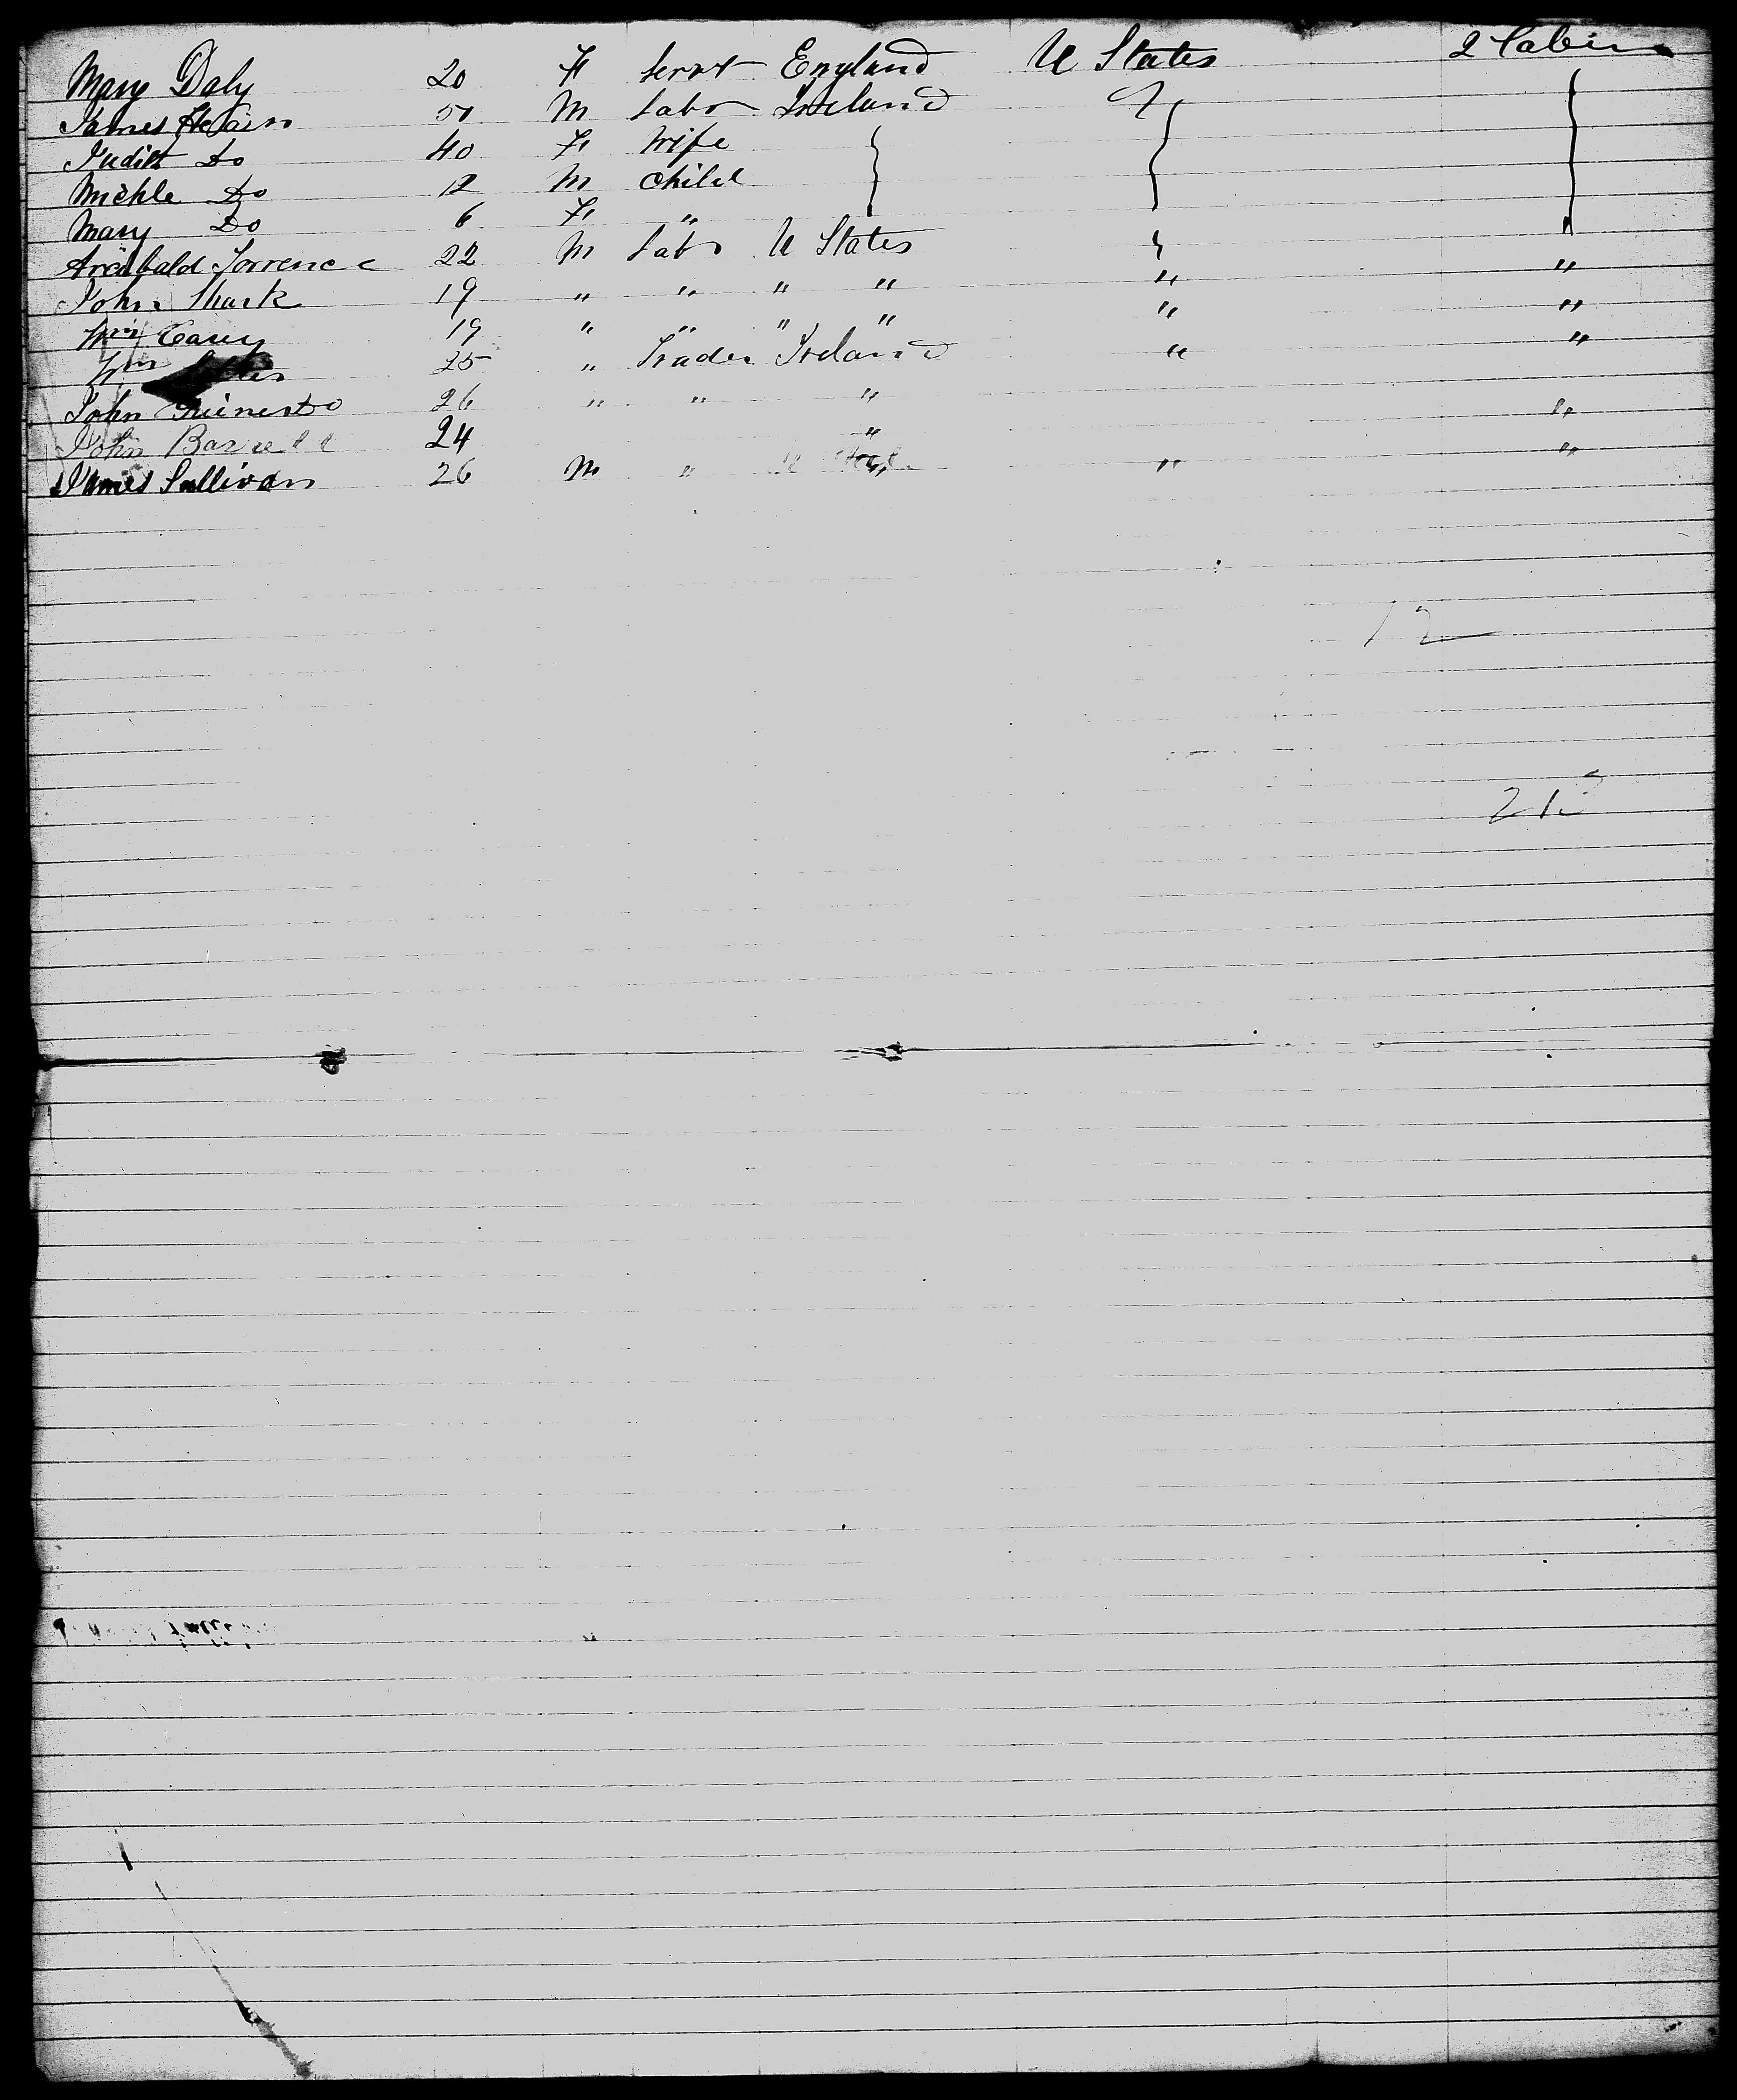 Mary Daly 20 F Servt England U States 2 Cabin
James 50 M Labr Ireland "
Judith Do 40 F Wife
Michle Do 12 M Child
Mary Do 6 F " "
Archibald Torrence 22 M Labr U States " "
John Shark 19 " " " " " "
Wm Carey 19 " " " " " "
Wm 25 " Trader Ireland "
John 26 " " " "
John Barrell 24 " "
James Sullivan 26 M " " "
12